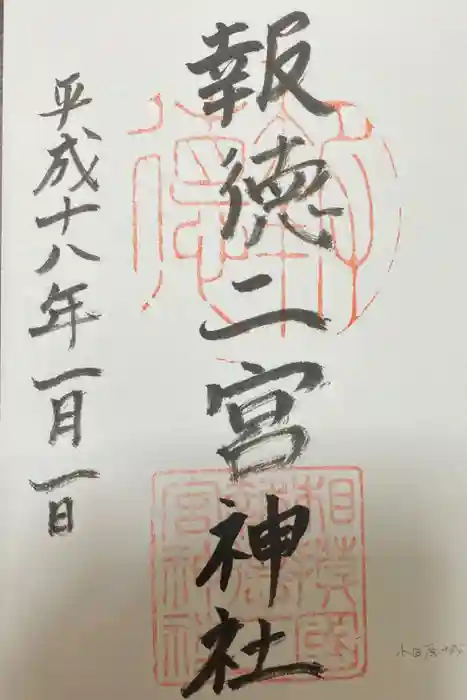 報徳二宮神社
平成十八年一月一日
相模國
報徳二
宮神社
報徳
小田原城